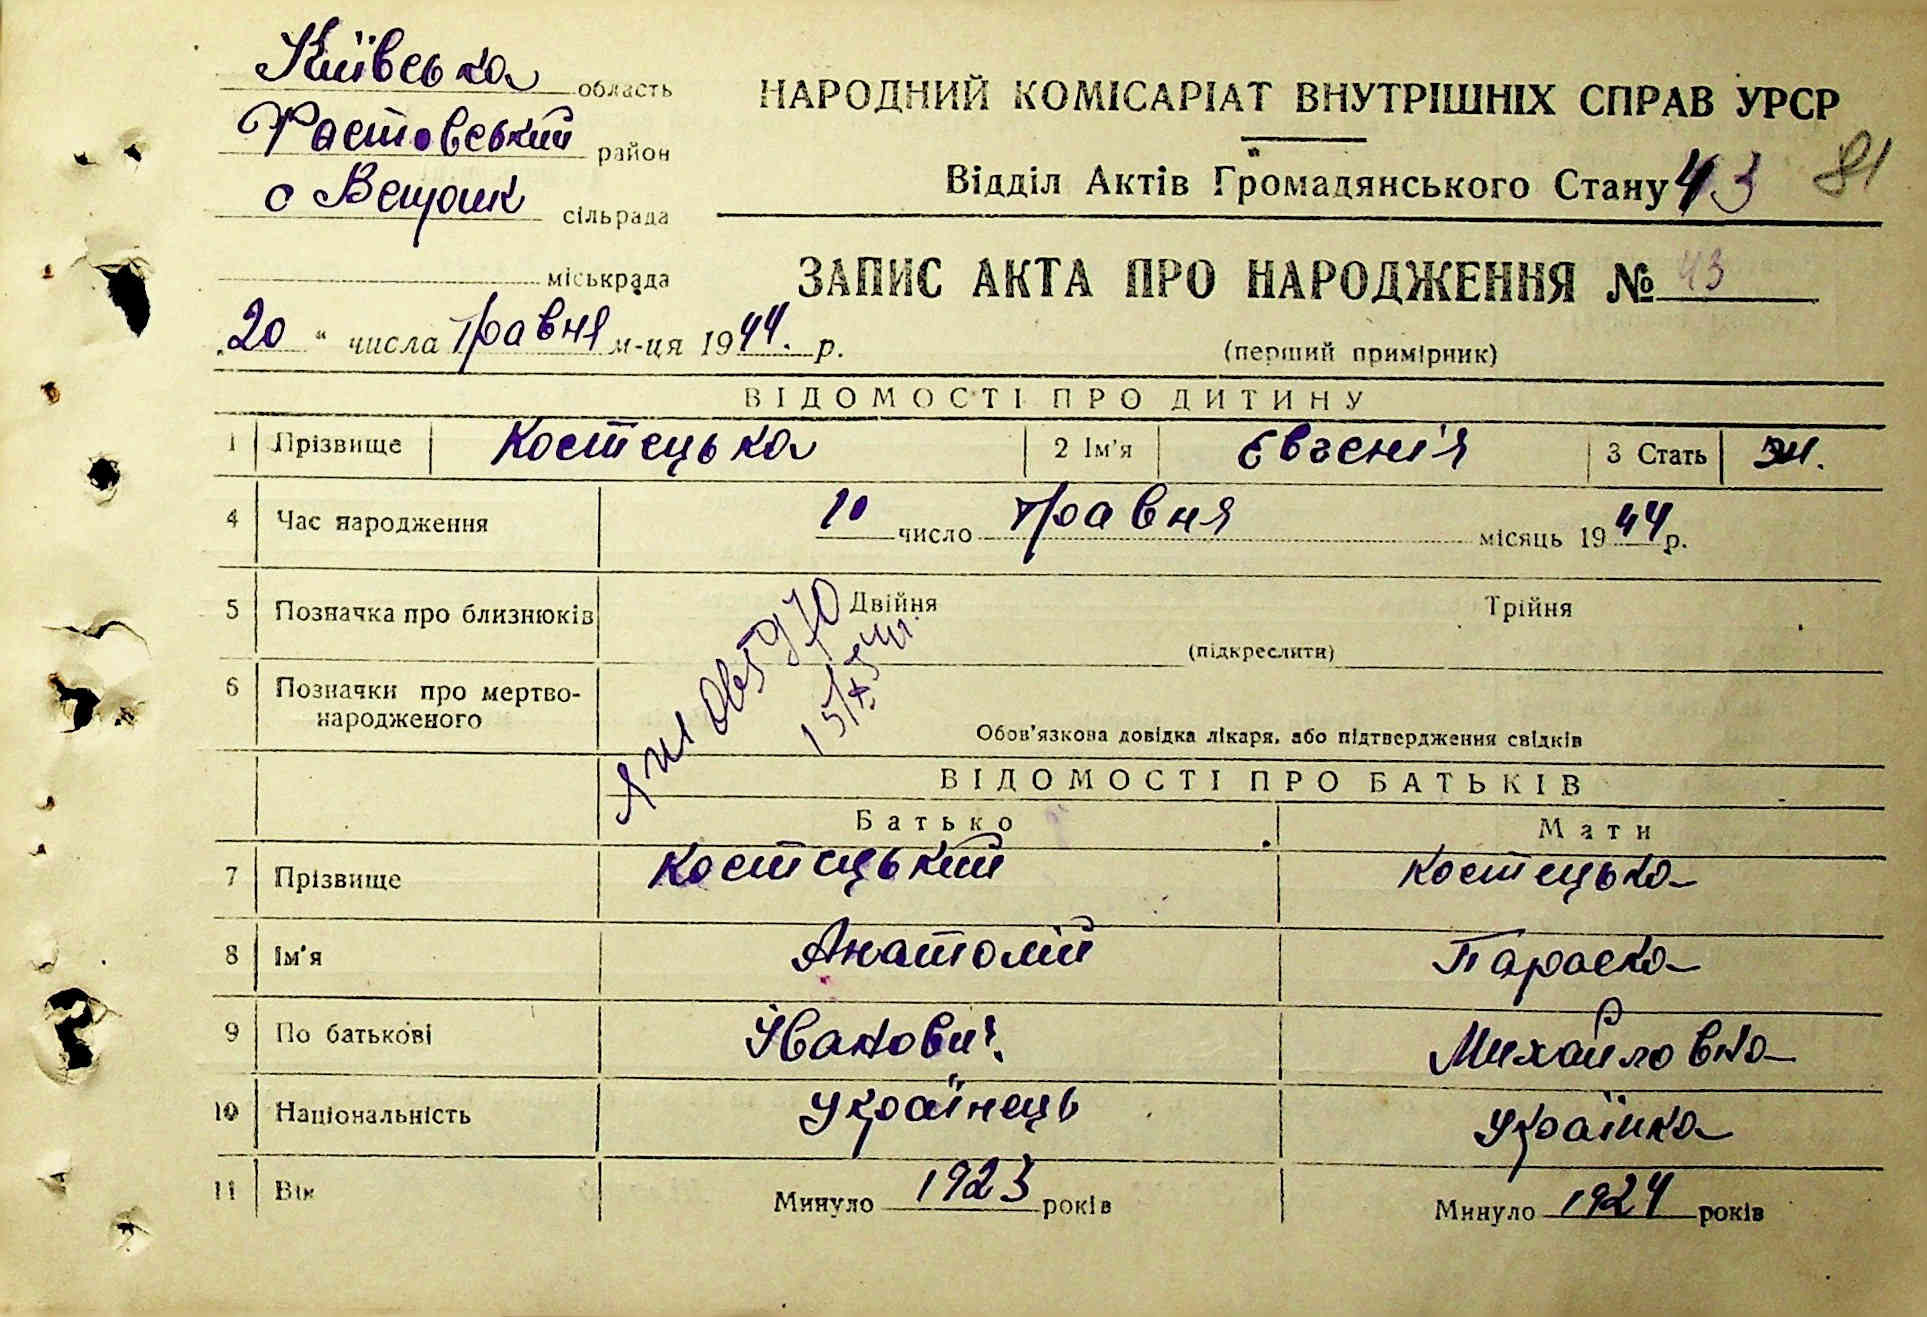 Київська область
НАРОДНИЙ КОМІСАРІАТ ВНУТРІШНІХ СПРАВ УРСР
Фастовський район
Відділ Актів Громадянського Стану 43 81
с сільрада
міськрада
ЗАПИС АКТА ПРО НАРОДЖЕННЯ № 43
„20" числа травня м-ця 1944. р.
(перший примірник)
ВІДОМОСТІ ПРО ДИТИНУ
1 Прізвище Костецька 2 Ім'я Євгенія 3 Стать ж.
4 Час народження 10 число травня місяць 1944 р.
5 Позначка про близнюків Двійня Трійня
(підкреслити)
6 Позначки про мертво-
народженого
Обов'язкова довідка лікаря, або підтвердження свідків
ВІДОМОСТІ ПРО БАТЬКІВ
Батько Мати
7 Прізвище Костецький Костецька
8 Ім'я Анатолій Параска
9 По батькові Іванович. Михайловна
10 Національність Українець Українка
11 Вік Минуло 1923 років Минуло 1924 років